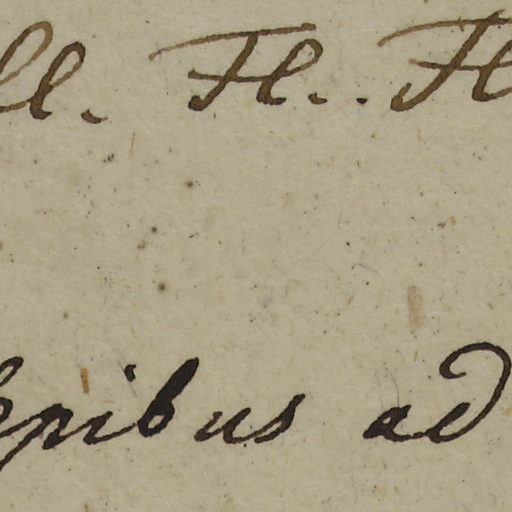 ll. Fl. Fl
pribus ad